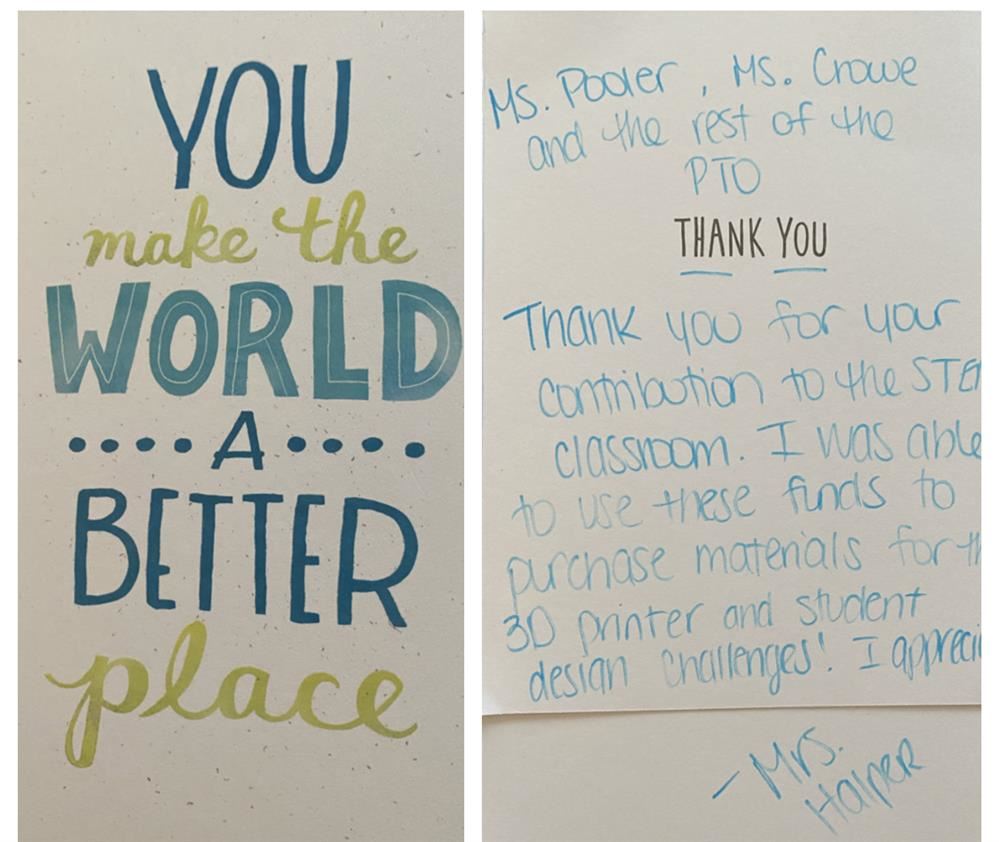 YOU
make the
WORLD
A
BETTER
place
Ms. Pooler, Ms. Crowe
and the rest of the
PTO
THANK YOU
Thank you for your
contribution to the STE
classroom. I was able
to use these finds to
purchase materials for th
3D printer and student
design challenges! I appreci
- Mrs.
Halper